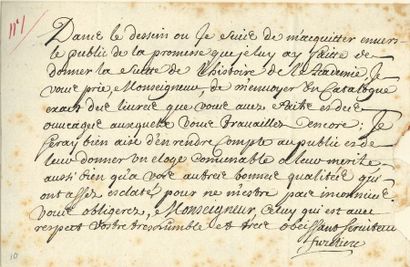 n°1
Dans le dessein ou Je suis de m'acquitter envers
le public de la promesse que je luy ay faitte de
donner la suitte de l'histoire de l'Academie, Je
vous prie, Monseigneur, de m'envoyer un Catalogue
exact des livres que vous avez faits et des
ouvrages auxquels vous travaillez encore; Je
seray bien aise d'en rendre compte au public et de
leur donner un eloge convenable a leur merite
aussi bien qu'a vos autres bonnes qualitez qui
ont assez esclaté pour ne m'estre pas inconnues.
Vous obligerez, Monseigneur, Celuy qui est avec
respect Vostre tres humble et tres obeissant serviteur
furetiere
10